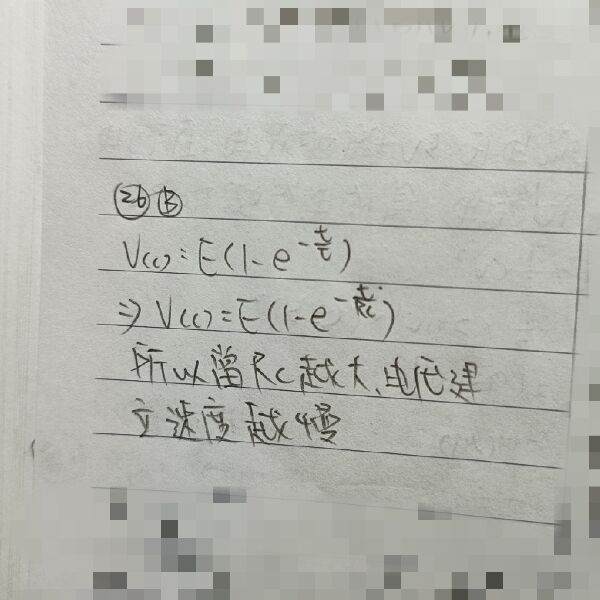 26 B
V(c) = E(1-e^{-t/τ})
⇒ V(c) = E(1-e^{-t/RC})
所以當RC越大、电底建
立速度越慢